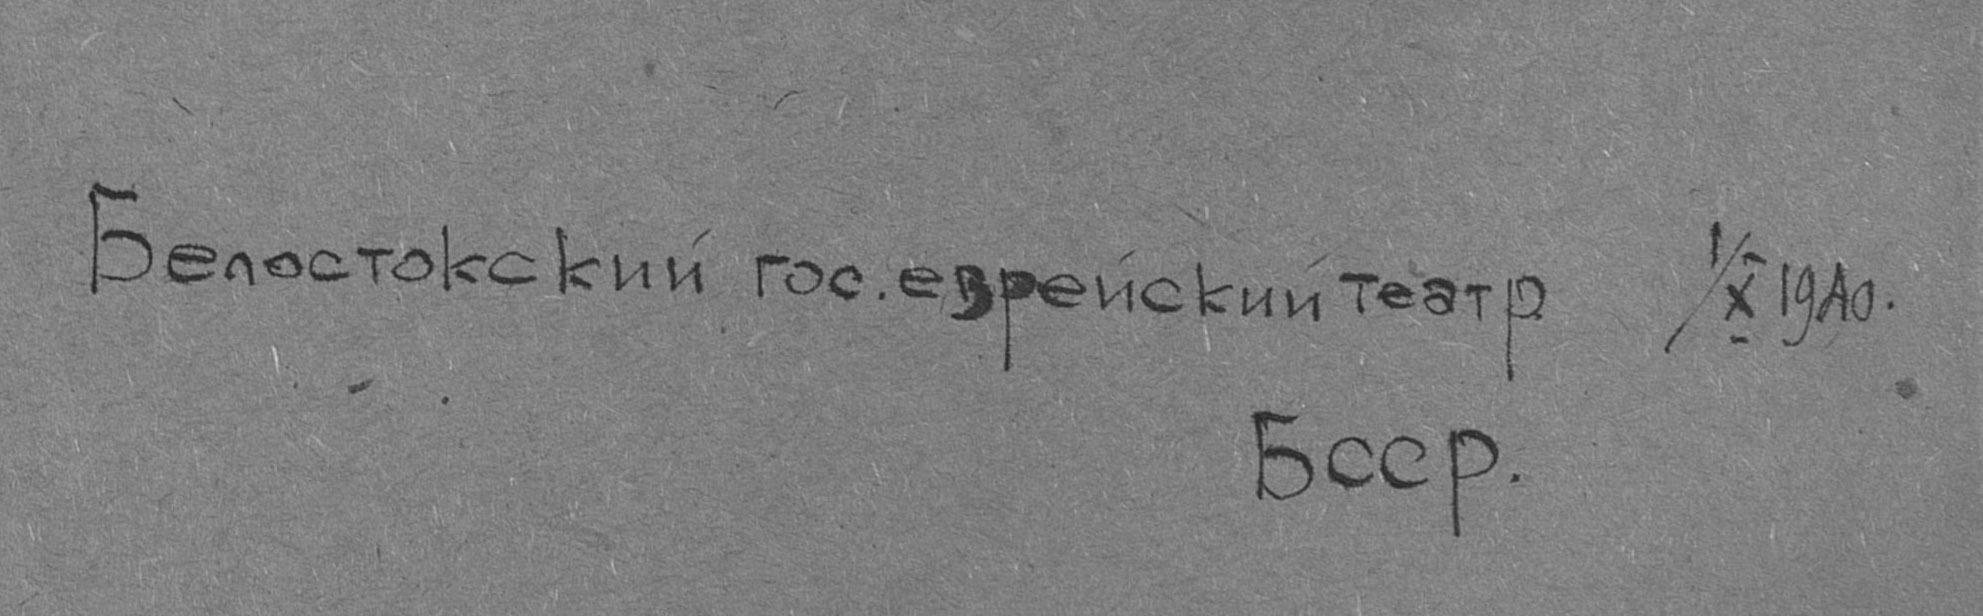 Белостокский гос. еврейский театр 1/X 1940.
Бсср.